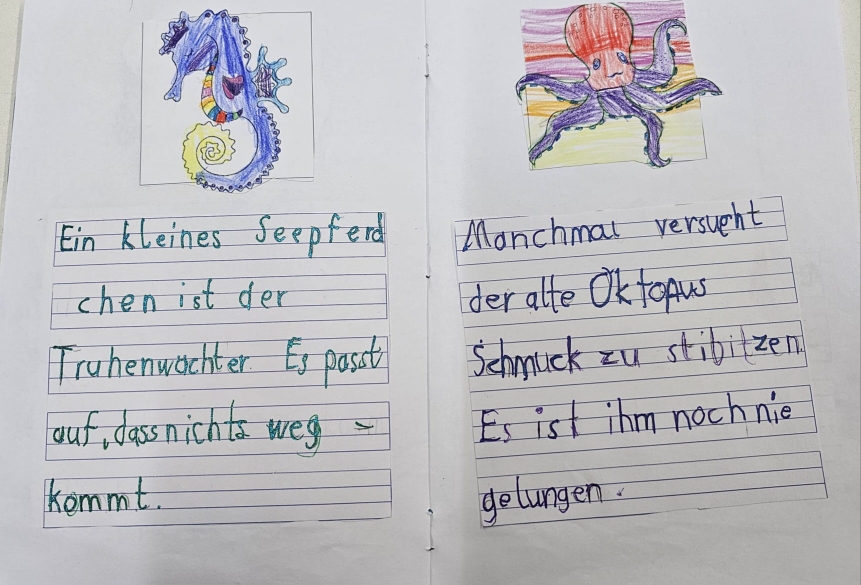 Ein kleines Seepferd
chen ist der
Truhenwachter. Es passt
auf, dass nichts weg -
kommt.
Manchmal versucht
der alte Oktopus
Schmuck zu stibitzen.
Es ist ihm noch nie
gelungen.